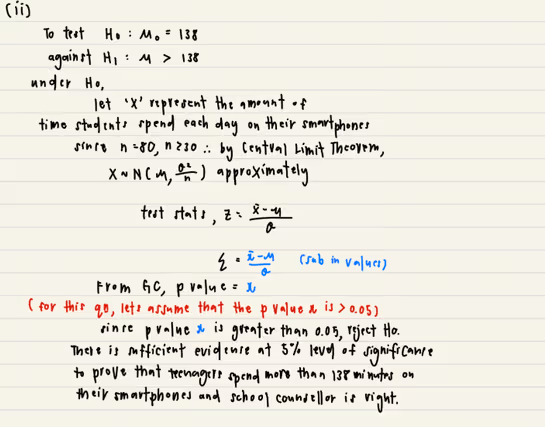 (ii)
To test H₀ : μ₀ = 138
against H₁ : μ > 138
under H₀,
let 'X' represent the amount of
time students spend each day on their smartphones
since n = 80, n ≥ 30 ∴ by Central Limit Theorem,
X ~ N ( μ, σ²/n ) approximately
test stats, z = x̄-μ/σ
z = x̄-μ/σ (sub in values)
From GC, p value = x
( for this qn, lets assume that the p value x is > 0.05)
since p value x is greater than 0.05, reject H₀.
There is sufficient evidence at 5% level of significance
to prove that teenagers spend more than 138 minutes on
their smartphones and school counsellor is right.